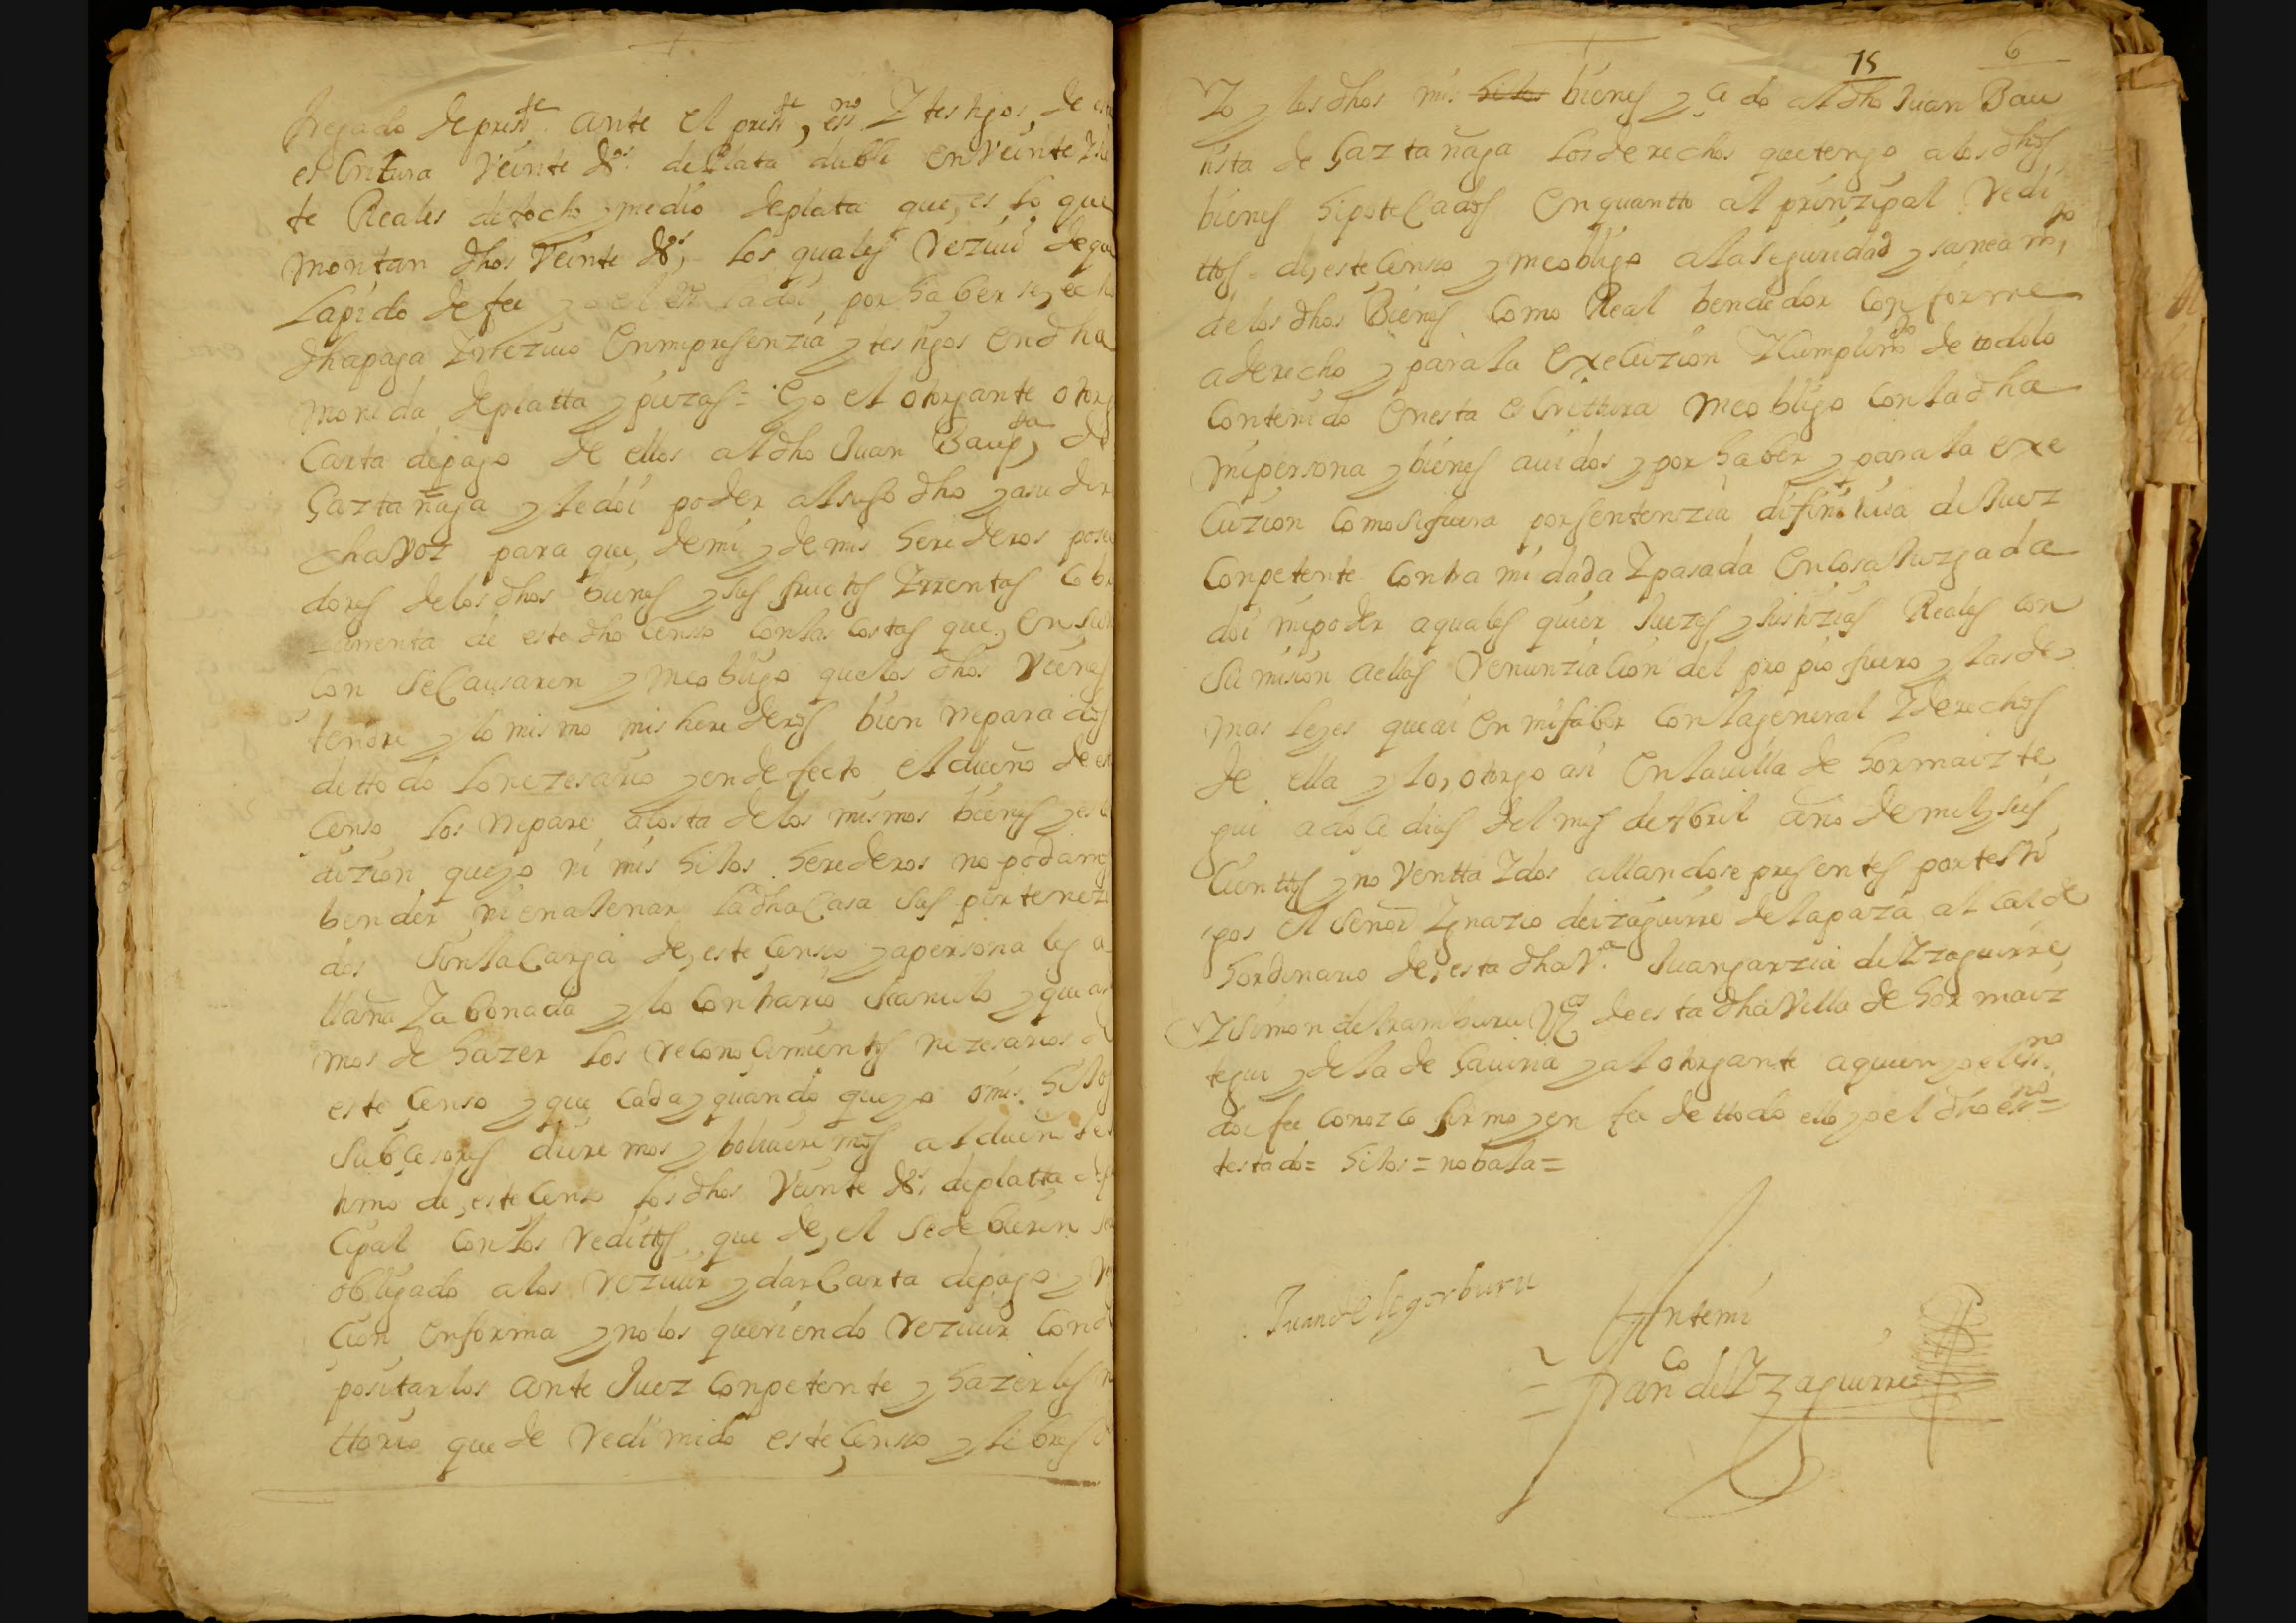 tregado depresste ante el presste essno Y testigos de es
escritura Veinte ds de Plata duble en Veinte Y sie
te Reales de tocho y medio de plata que es lo que
montan dhos Veinte ds, los quales Rezivi de que
lapido de fee yo el essno la doi, por haberse, ech
dha paga Y rrezivo en mi presenzia y testigos en dha
moneda de platta y piezas = E yo el otorgante otorg
Carta de pago de ellos al dho Juan Bauptta, de
Gaztañaga y le doi poder al suso dho y a su der
cha Voz para que de mi y de mis herederos posee
dores de los dhos bienes y sus fructos Y rrentas Cobr
rrenta de este dho Censo con las costas que, en su
con se Causaren y me obligo que los dhos Vienes
tendre y lo mismo mis herederos bien rreparados
de ttodo lo nezesario y en defecto el dueño de es
Censo los rrepare a costa de los mismos bienes y es
dizion que yo ni mis hijos herederos no podamos
bender ni enajenar la dha Casa sus pertenezi
dos sin la Carga de, este Censo y a persona leg a
llana Y abonada y lo Contrario sea nulo y que a
mos de hazer los reconocimientos nezesarios d
este Censo y que Cada y quando que yo o mis hijos
subcesores dieremos y bolvieremos al dueño le
timo de, este Censo los dhos Veinte ds de platta
cipal Con los redittos que de, el se debieren se
obligado a los rezivir y dar Carta de pago y r
cion en forma y no los queriendo rezivir Con d
positarlos ante Juez Conpetente y hazerles n
ttorio quede redimido este Censo y libres
15
6
Yo y los dhos mis hijos bienes y cedo al dho Juan Bau
tista de Gaztañaga los derechos que tengo a los dhos
bienes hipotecados en quantto al prinzipal redi
ttos de, este Censo y me obligo a la seguridad y saneamto,
de los dhos Bienes Como Real bendedor Conforme
a derecho y para la execuzion Y Cumplimto de todo lo
Contenido en esta escrittura me obligo Con la dha
mi persona y bienes avidos y por haber y para la exe
cuzion Como si fuera por sentenzia difinitiva de Juez
Conpetente Contra mi dada Y pasada en Cosa Juzgada
doi mi poder a quales quier Juezes y Justizias Reales con
sumision a ellas renunziacion del propio fuero y las de
mas leyes que ai en mi fabor Con la jeneral Y derechos
de ella y lo, otorgo asi en la villa de hormaizte
gui a doce dias del mes de Abril año de mil y seis
cienttos y noventta Y dos allandose presentes por testi
gos el Señor Ygnazio de izaguirre de la paza alcalde
hordinario de, esta dha Va. Juan garzia de Yzaguirre
Y Simon de Aramburu Vos de esta dha Villa de hormaiz
tegui y de la de Gaviria y al otorgante a quien yo el essno
doi fee conozco firmo y en fee de ttodo ello yo el dho essno =
testado = hijos = no bala =
Juan de ligorburu
Ante mi
= Franco de Yzaguirre